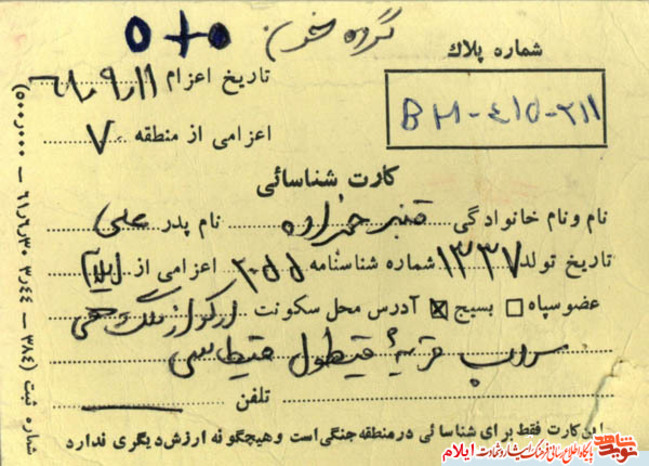 گروه خون O+
شماره پلاك
BM-415-211
تاریخ اعزام ۶۱٫۹٫۱۱
اعزامی از منطقه ۷
کارت شناسائی
نام و نام خانوادگی قنبر حمزاده نام پدر علی
تاریخ تولد ۱۳۳۷ شماره شناسنامه اعزامی از ایلام
عضو سپاه □ بسیج ☒ آدرس محل سکونت ارکواز ملکشاهی
سراب قریهٔ قیطول قیطاسی
تلفن
این کارت فقط برای شناسائی در منطقه جنگی است و هیچگونه ارزش دیگری ندارد
شماره ثبت (۳۸۴ – ۴۴ر۳ – ۳۰ر۶ر۶۱ – ۰۰۰ر۵۰۰)
نوید شاهد
پایگاه اطلاع رسانی فرهنگ ایثار و شهادت ایلام